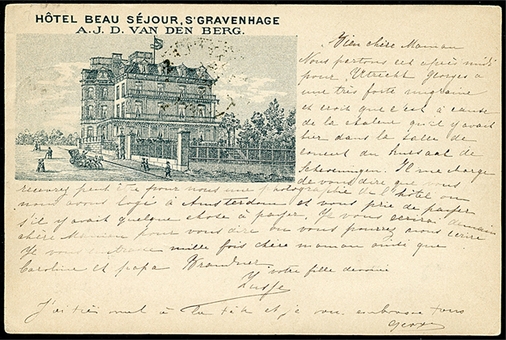 HÔTEL BEAU SÉJOUR, S'GRAVENHAGE
A. J. D. VAN DEN BERG.
Bien chère Maman
Nous partons cet après midi
pour Utrecht Georges a
une très forte migraine
et croit que c'est à cause
de la chaleur qu'il y avait
hier dans la salle de
concert du kursaal de
Il me charge
de vous dire que vous
recevrez peut être pour nous une de l'hôtel où
nous avons logé à Amsterdam et vous prie de payer
s'il y avait quelque chose à payer, Je vous écrirai demain
chère Maman pour vous dire où vous pourrez nous écrire
Je vous embrasse mille fois chère maman ainsi que
Caroline et papa
votre fille
J'ai très mal à la tête et je vous embrasse tous